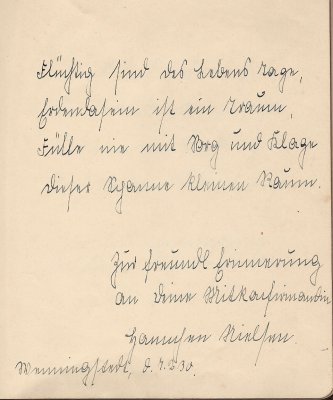 Flüchtig sind des Lebens Tage,
Erdendasein ist ein Traum,
Fülle nie mit Sorg und Klage
dieser Spanne kleinen Raum.
Zur freundl Erinnerung
an Deine Mitkonfirmandin
Hannchen Nielsen.
Wenningstedt, d.